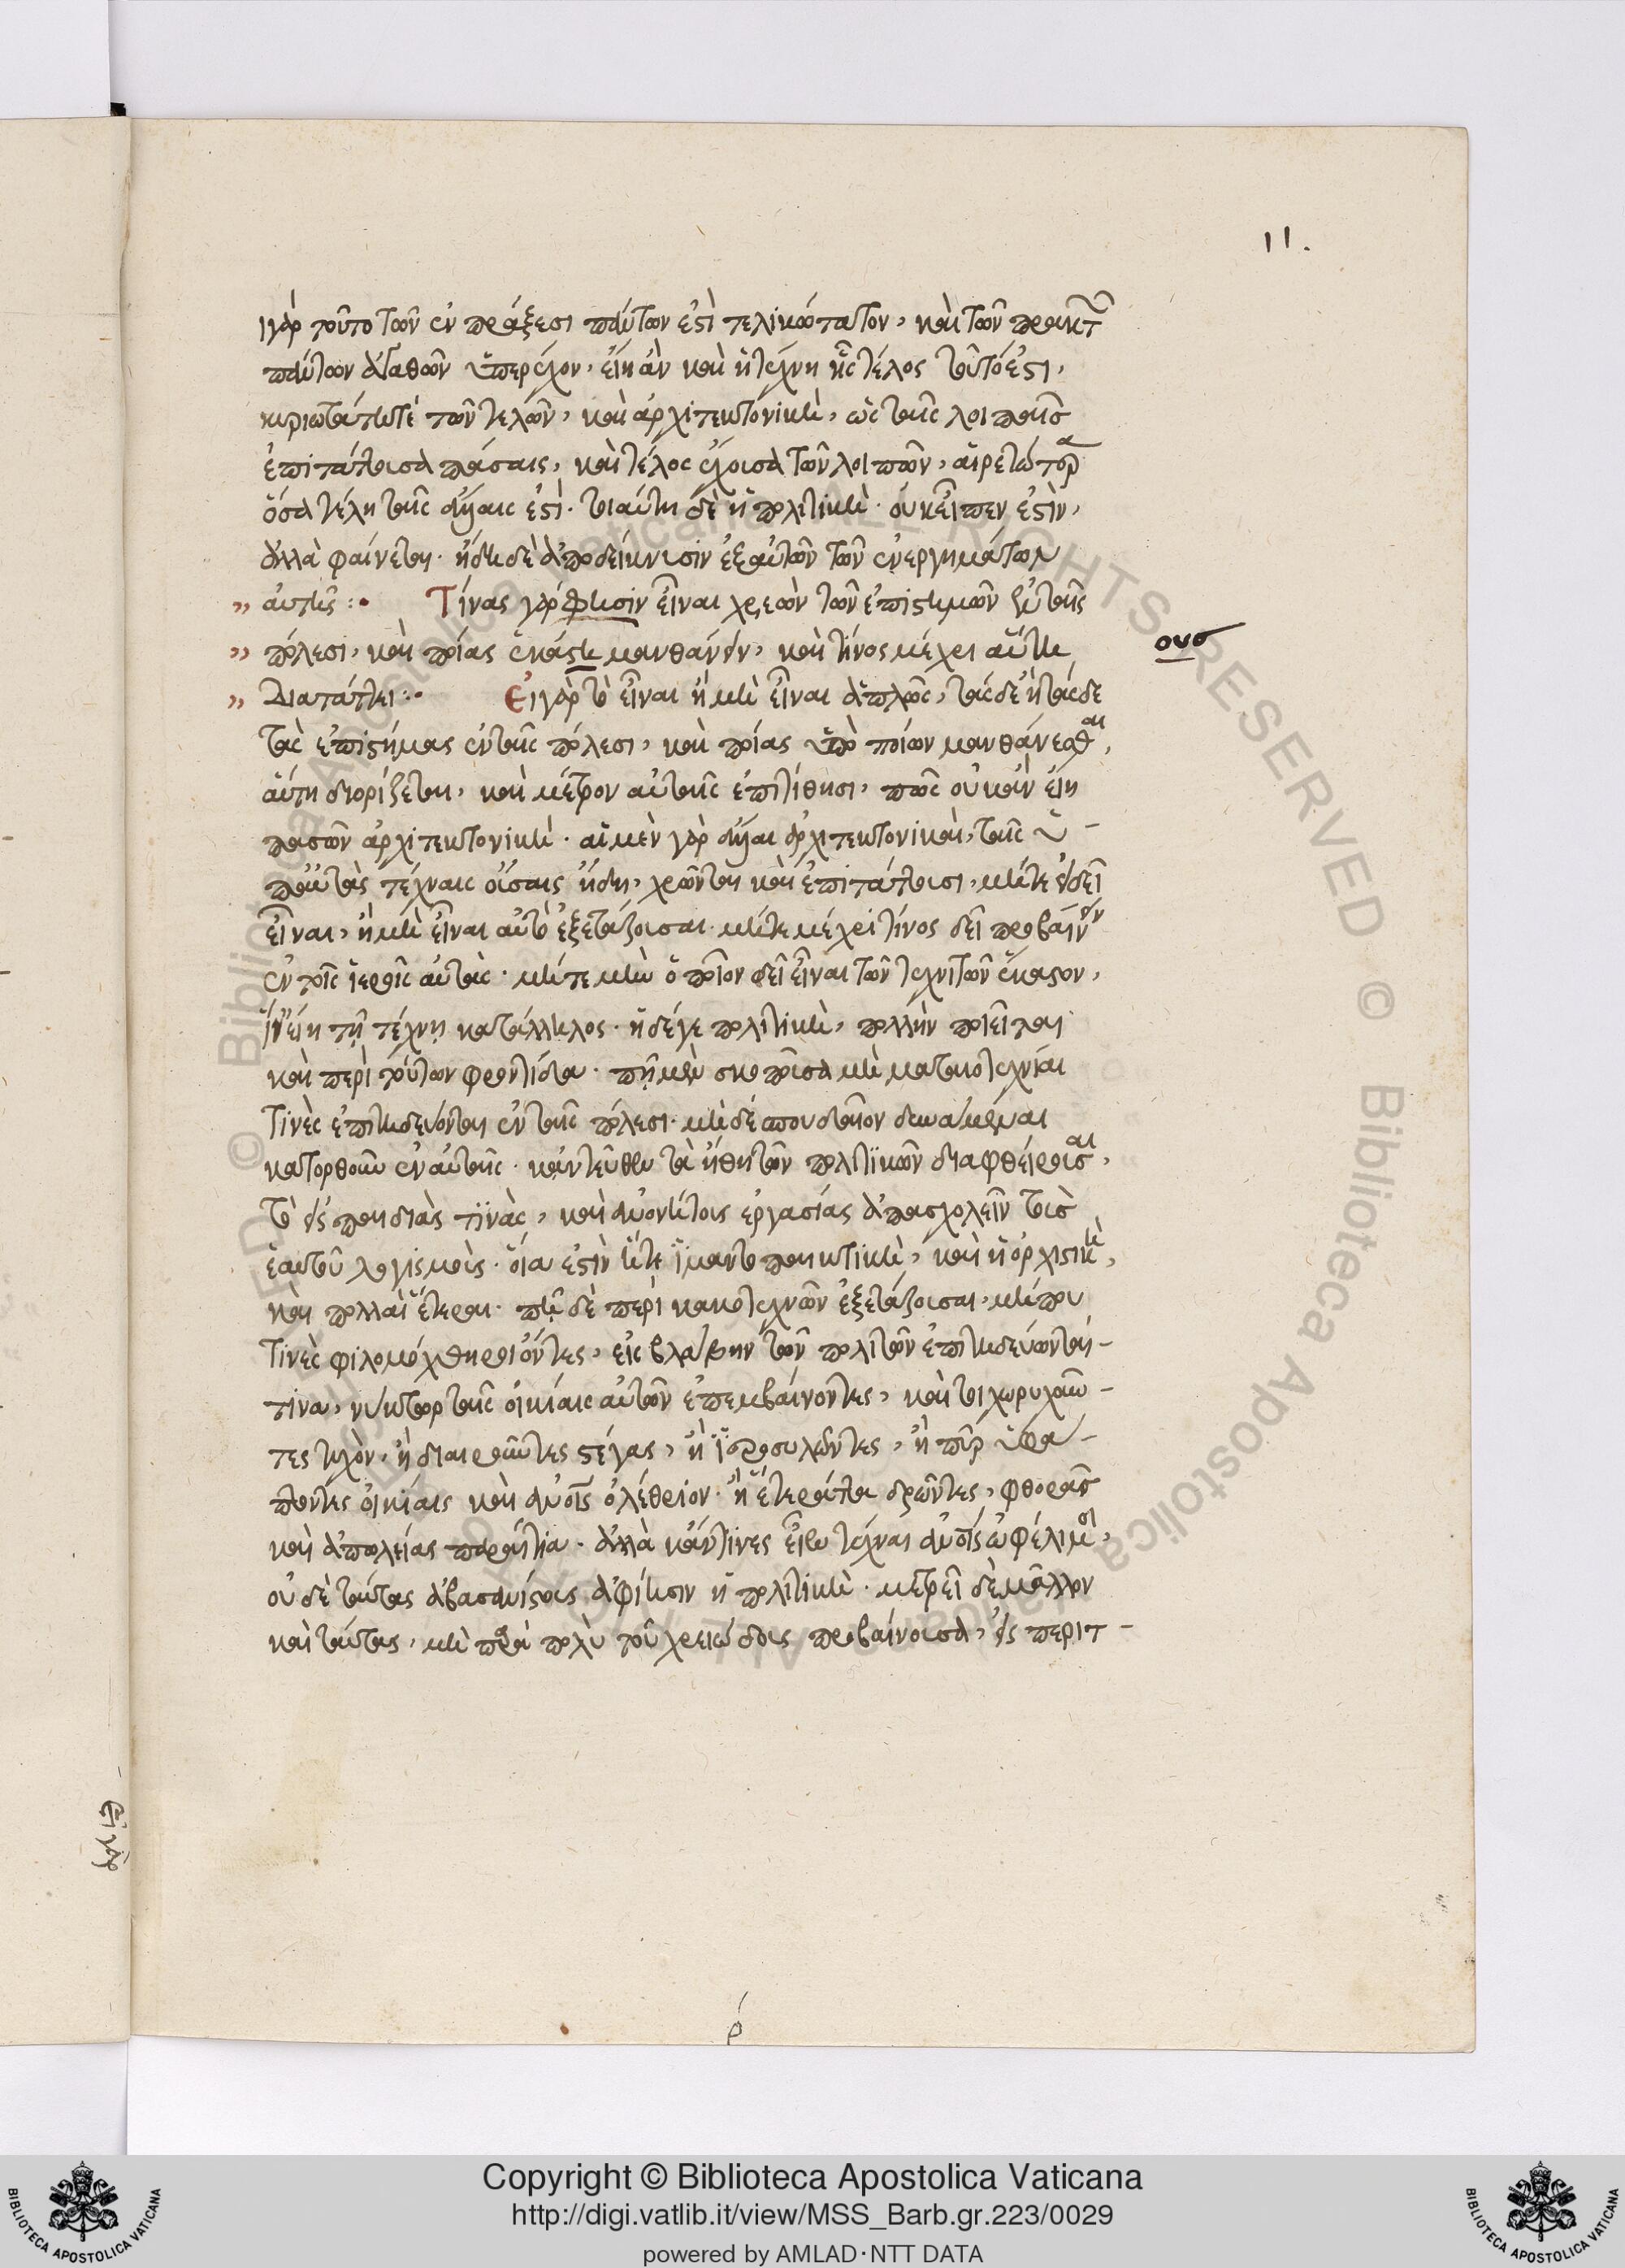 11.
γὰρ τοῦτο τῶν ἐν πράξεσι πάντων ἐστὶ τελικώτατον, καὶ τῶν πρακτῶν
πάντων ἀγαθῶν ὑπερέχον, εἴη ἂν καὶ ἡ τέχνη ἧς τέλος τοῦτό ἐστι,
κυριωτάτη τε τῶν τελῶν, καὶ ἀρχιτεκτονικὴ, ὡς ταῖς λοιπαῖς
ἐπιτάττουσα πάσαις, καὶ τέλος ἔχουσα τῶν λοιπῶν, αἱρετώτερα
ὅσα τέλη ταῖς ἄλλαις ἐστὶ. τοιαύτη δὲ ἡ πολιτικὴ. οὐκ εἶπεν ἐστὶν,
ἀλλὰ φαίνεται. ἤδη δὲ ἀποδείκνυσιν ἐξ αὐτῶν τῶν ἐνεργημάτων
" αὐτῆς :• Τίνας γάρ φησιν εἶναι χρεὼν τῶν ἐπιστημῶν ἐν ταῖς
" πόλεσι, καὶ ποίας ἑκάστη μανθάνειν, καὶ τίνος μέχρι αὕτη
ους
" διατάττει :• Εἰ γὰρ τὸ εἶναι ἢ μὴ εἶναι ἁπλῶς, τάσδε ἢ τάσδε
τὰς ἐπιστήμας ἐν ταῖς πόλεσι, καὶ ποίας ὑπὸ ποίων μανθάνεσθαι,
αὕτη διορίζεται, καὶ μέτρον αὐταῖς ἐπιτίθησι, πῶς οὐκ ἂν εἴη
πασῶν ἀρχιτεκτονικὴ. αἱ μὲν γὰρ ἄλλαι ἀρχιτεκτονικαὶ, ταῖς ὑ-
π' αὐτὰς τέχναις οὔσαις ἤδη, χρῶνται καὶ ἐπιτάττουσι, μήτε εἰ δεῖ
εἶναι, ἢ μὴ εἶναι αὐτὸ ἐξετάζουσαι. μήτε μέχρι τίνος δεῖ προβαίνειν
ἐν τοῖς ἔργοις αὐτὰς. μήτε μὴν ὁποῖον δεῖ εἶναι τῶν τεχνιτῶν ἕκαστον,
ἵν' εἴη τῇ τέχνῃ κατάλληλος. ἡ δέ γε πολιτικὴ, πολλὴν ποιεῖται
καὶ περὶ τούτων φροντίδα. πῆ μὲν σκοποῦσα μὴ ματαιοτεχνίαι
τινὲς ἐπιτηδεύονται ἐν ταῖς πόλεσι. μηδὲ σπουδαῖον δυνάμεναι
κατορθοῦν ἐν αὐταῖς. κἀντεῦθεν τὰ ἤθη τῶν πολιτικῶν διαφθείρουσαι,
τὸ εἰς παιδιὰς τινὰς, καὶ ἀνονήτους ἐργασίας ἀπασχολεῖν τοὺς
ἑαυτοῦ λογισμοὺς. οἵα ἐστὶν ἥτε ἱμαντοπαικτικὴ, καὶ ἡ ὀρχηστικὴ,
καὶ πολλαὶ ἕτεραι. πῆ δὲ περὶ κακοτεχνιῶν ἐξετάζουσαι, μήπου
τινὲς φιλομόχθηροι ὄντες, εἰς βλάβην τῶν πολιτῶν ἐπιτηδεύωνται
τινα, νύκτωρ ταῖς οἰκίαις αὐτῶν ἐπεμβαίνοντες, καὶ τοιχωρυχοῦν-
τες τυχὸν, ἢ διαιροῦντες στέγας, ἢ ἱεροσυλοῦντες, ἢ πῦρ ὑφά-
πτοντες οἰκίαις καὶ ἀνοῖς ὀλέθριον. ἢ ἕτερ' ἄττα δρῶντες, φθορᾶς
καὶ ἀπωλείας παραίτια. ἀλλὰ κἄν τινες εἶεν τέχναι ἀνοῖς ὠφέλιμοι,
οὐδὲ ταύτας ἀβασανίστους ἀφίησιν ἡ πολιτικὴ. μετρεῖ δὲ μᾶλλον
καὶ ταύτας, μὴ παρὰ πολὺ τοῦ χρειώδους προβαίνουσα, εἰς περιτ-
Εἰ γὰρ
Copyright © Biblioteca Apostolica Vaticana
http://digi.vatlib.it/view/MSS_Barb.gr.223/0029
powered by AMLAD·NTT DATA